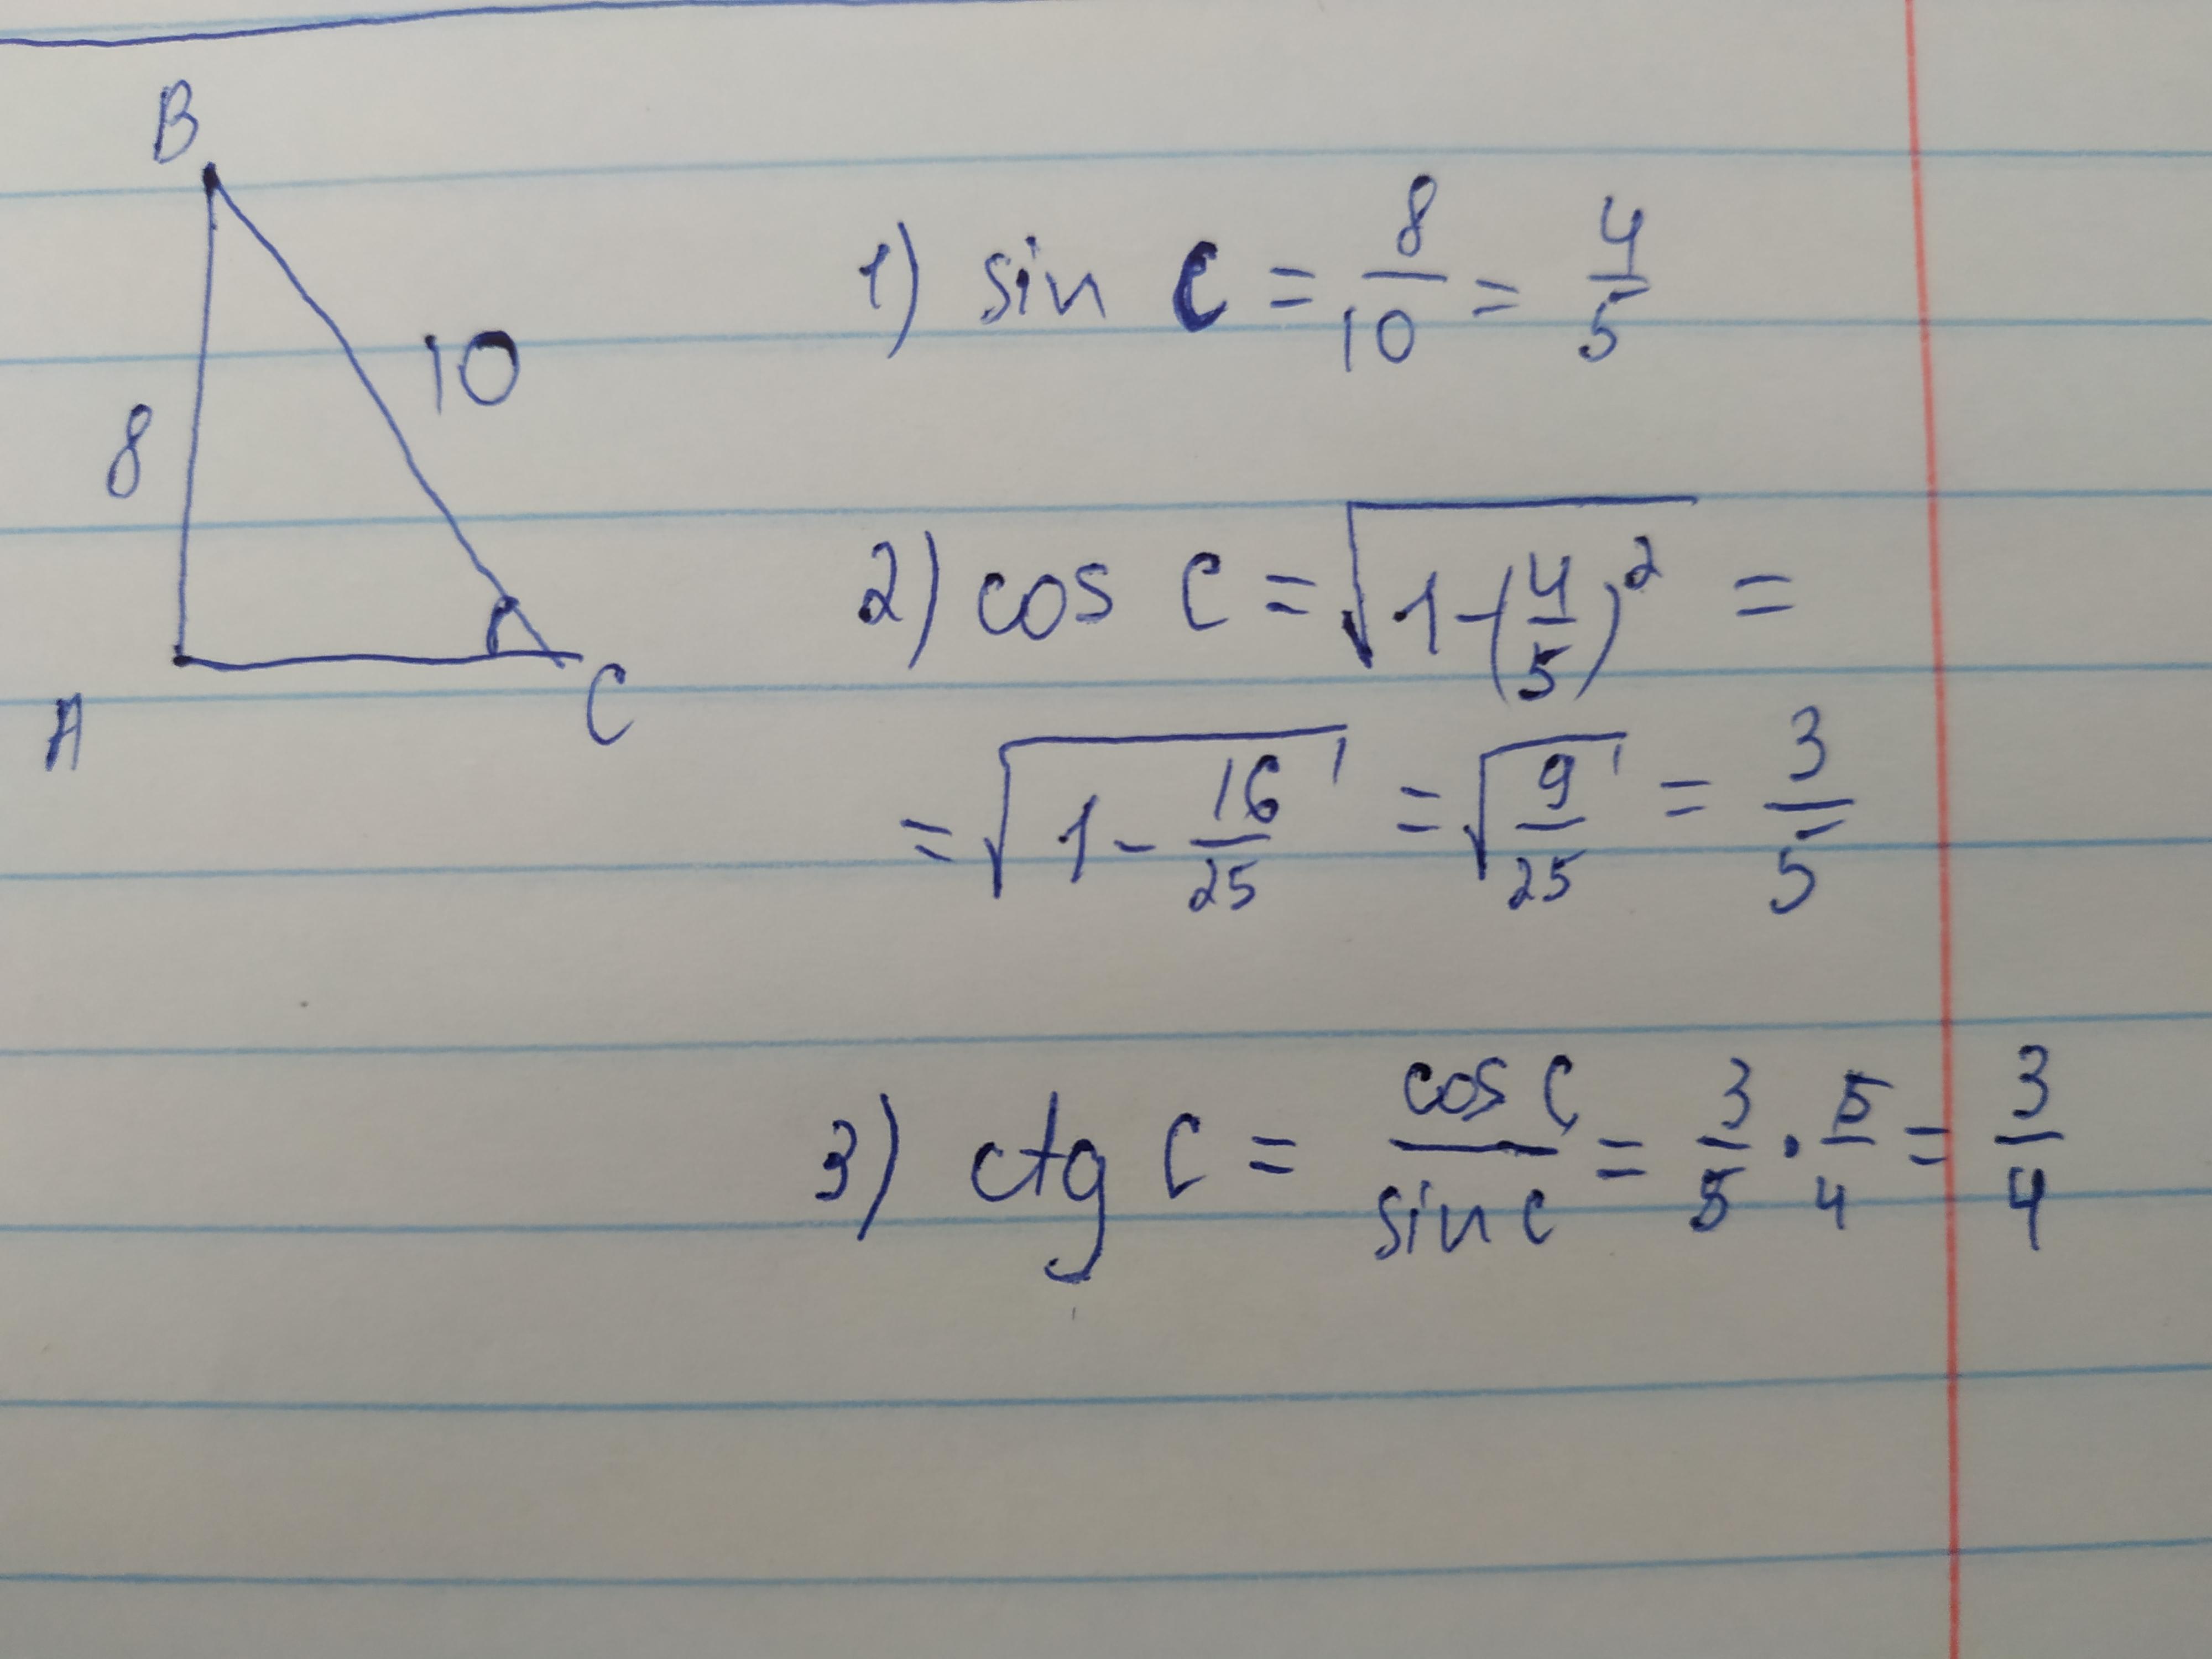 B
10
8
A
C
1) sin C = 8/10 = 4/5
2) cos C = √(1-(4/5)²) =
= √(1 - 16/25) = √(9/25) = 3/5
3) ctg C = cos C/sin C = 3/5 · 5/4 = 3/4